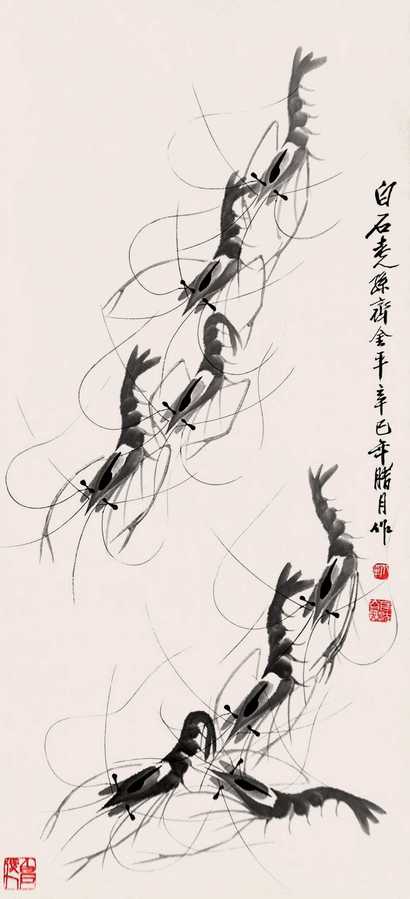 白石老人孫齊金平辛巳年腊月作